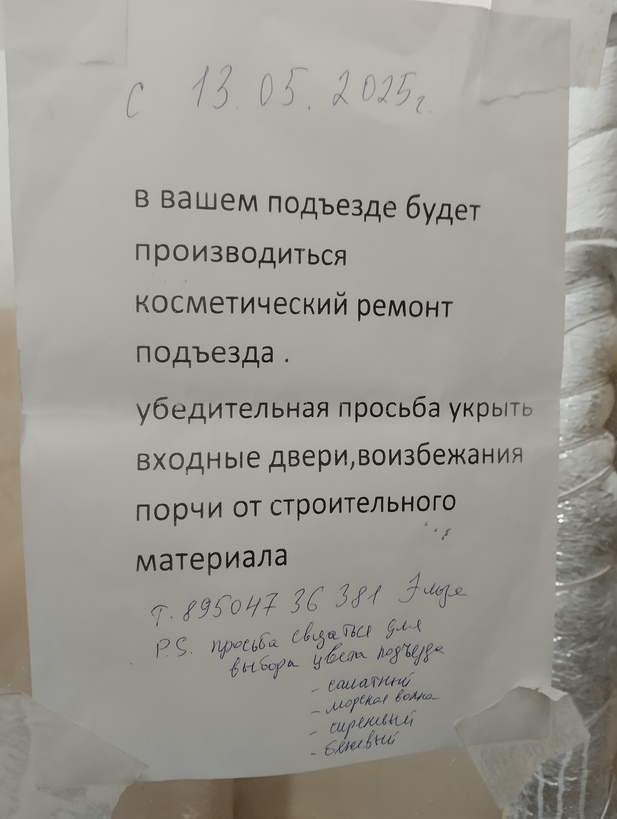 с 13.05.2025г.
в вашем подъезде будет
производиться
косметический ремонт
подъезда .
убедительная просьба укрыть
входные двери,воизбежания
порчи от строительного
материала
т. 895047 36 381
P.S. просьба связаться для
выбора цвета подъезда
- салатный
- морская волна
- сиреневый
- бежевый